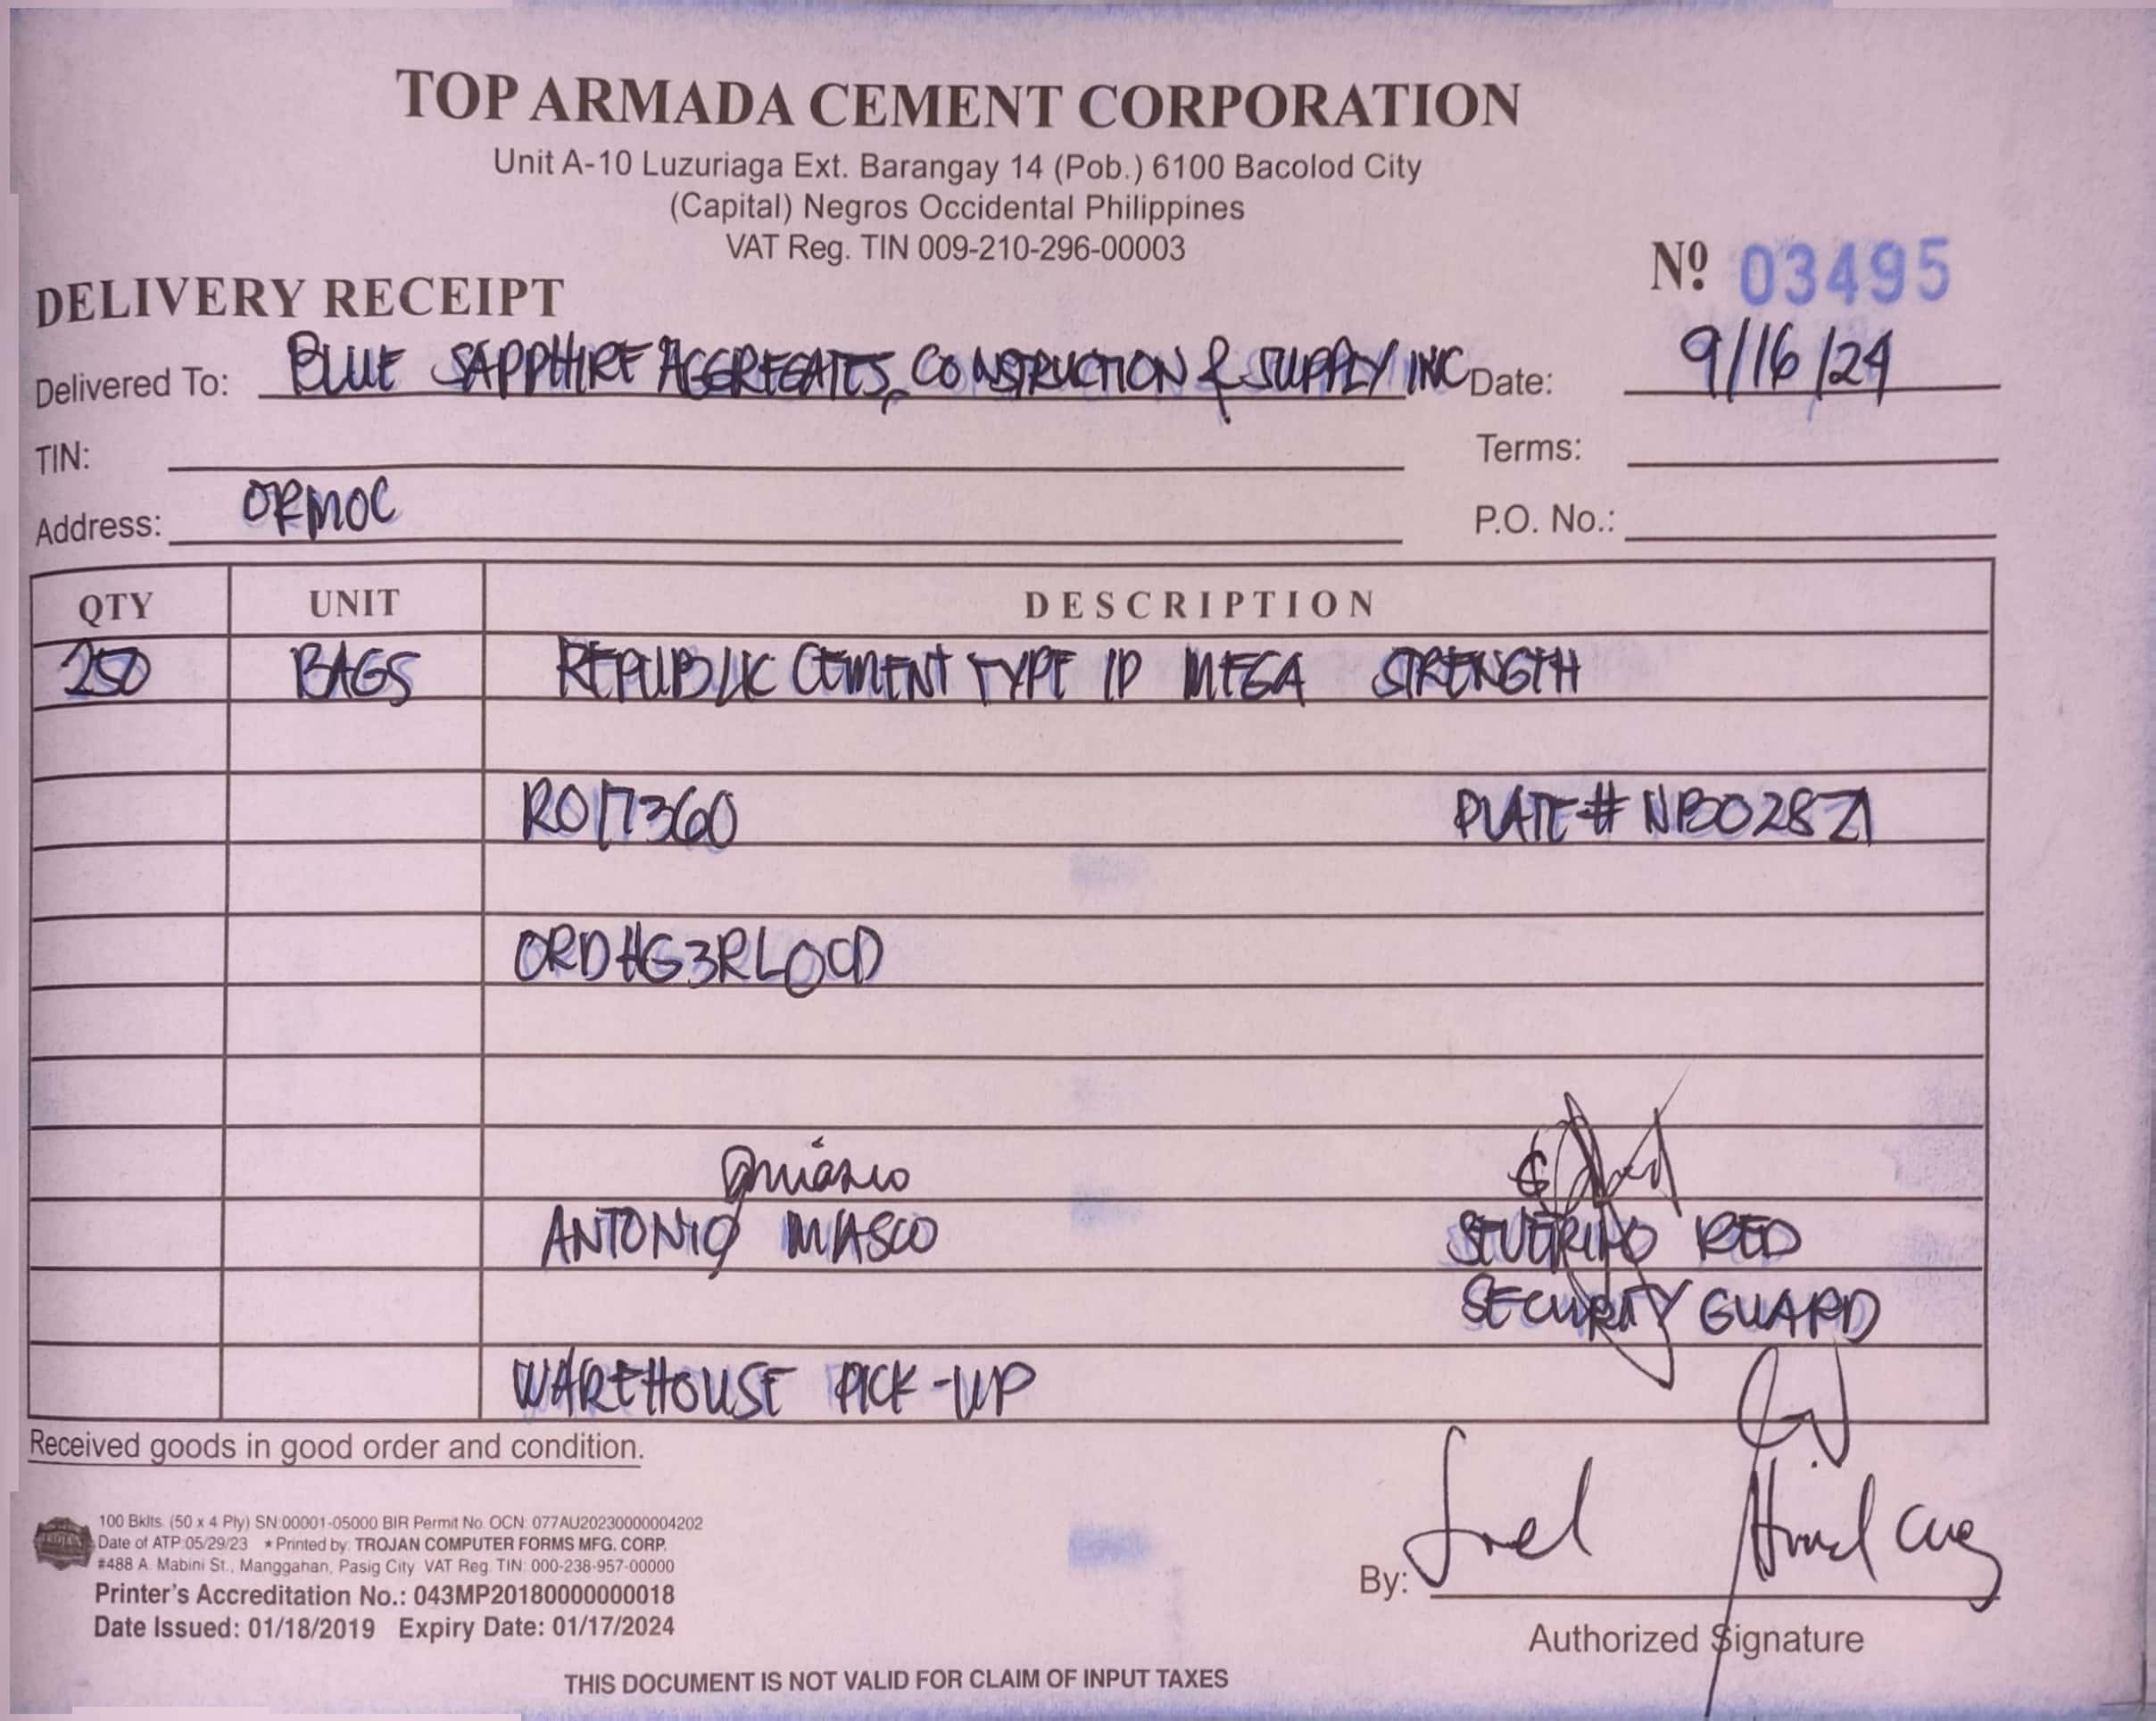 TOP ARMADA CEMENT CORPORATION
Unit A-10 Luzuriaga Ext. Barangay 14 (Pob.) 6100 Bacolod City
(Capital) Negros Occidental Philippines
VAT Reg. TIN 009-210-296-00003
Nº 03495
DELIVERY RECEIPT
Delivered To: BLUE SAPPHIRE AGGREGATES, CONSTRUCTION & SUPPLY INC Date: 9/16/24
TIN: Terms:
Address: ORMOC P.O. No.:
QTY UNIT DESCRIPTION
250 BAGS REPUBLIC CEMENT TYPE 1P MEGA STRENGTH
RO17360 PLATE# NBO2871
ORDHG3RLOCD
ANTONIO MASCO SEVERINO RED
SECURITY GUARD
WAREHOUSE PICK-UP
Received goods in good order and condition.
100 Bklts. (50 x 4 Ply) SN:00001-05000 BIR Permit No. OCN: 077AU20230000004202
Date of ATP:05/29/23 ★Printed by: TROJAN COMPUTER FORMS MFG. CORP.
#488 A. Mabini St., Manggahan, Pasig City VAT Reg. TIN: 000-238-957-00000
Printer's Accreditation No.: 043MP20180000000018
Date Issued: 01/18/2019 Expiry Date: 01/17/2024
By:
Authorized Signature
THIS DOCUMENT IS NOT VALID FOR CLAIM OF INPUT TAXES